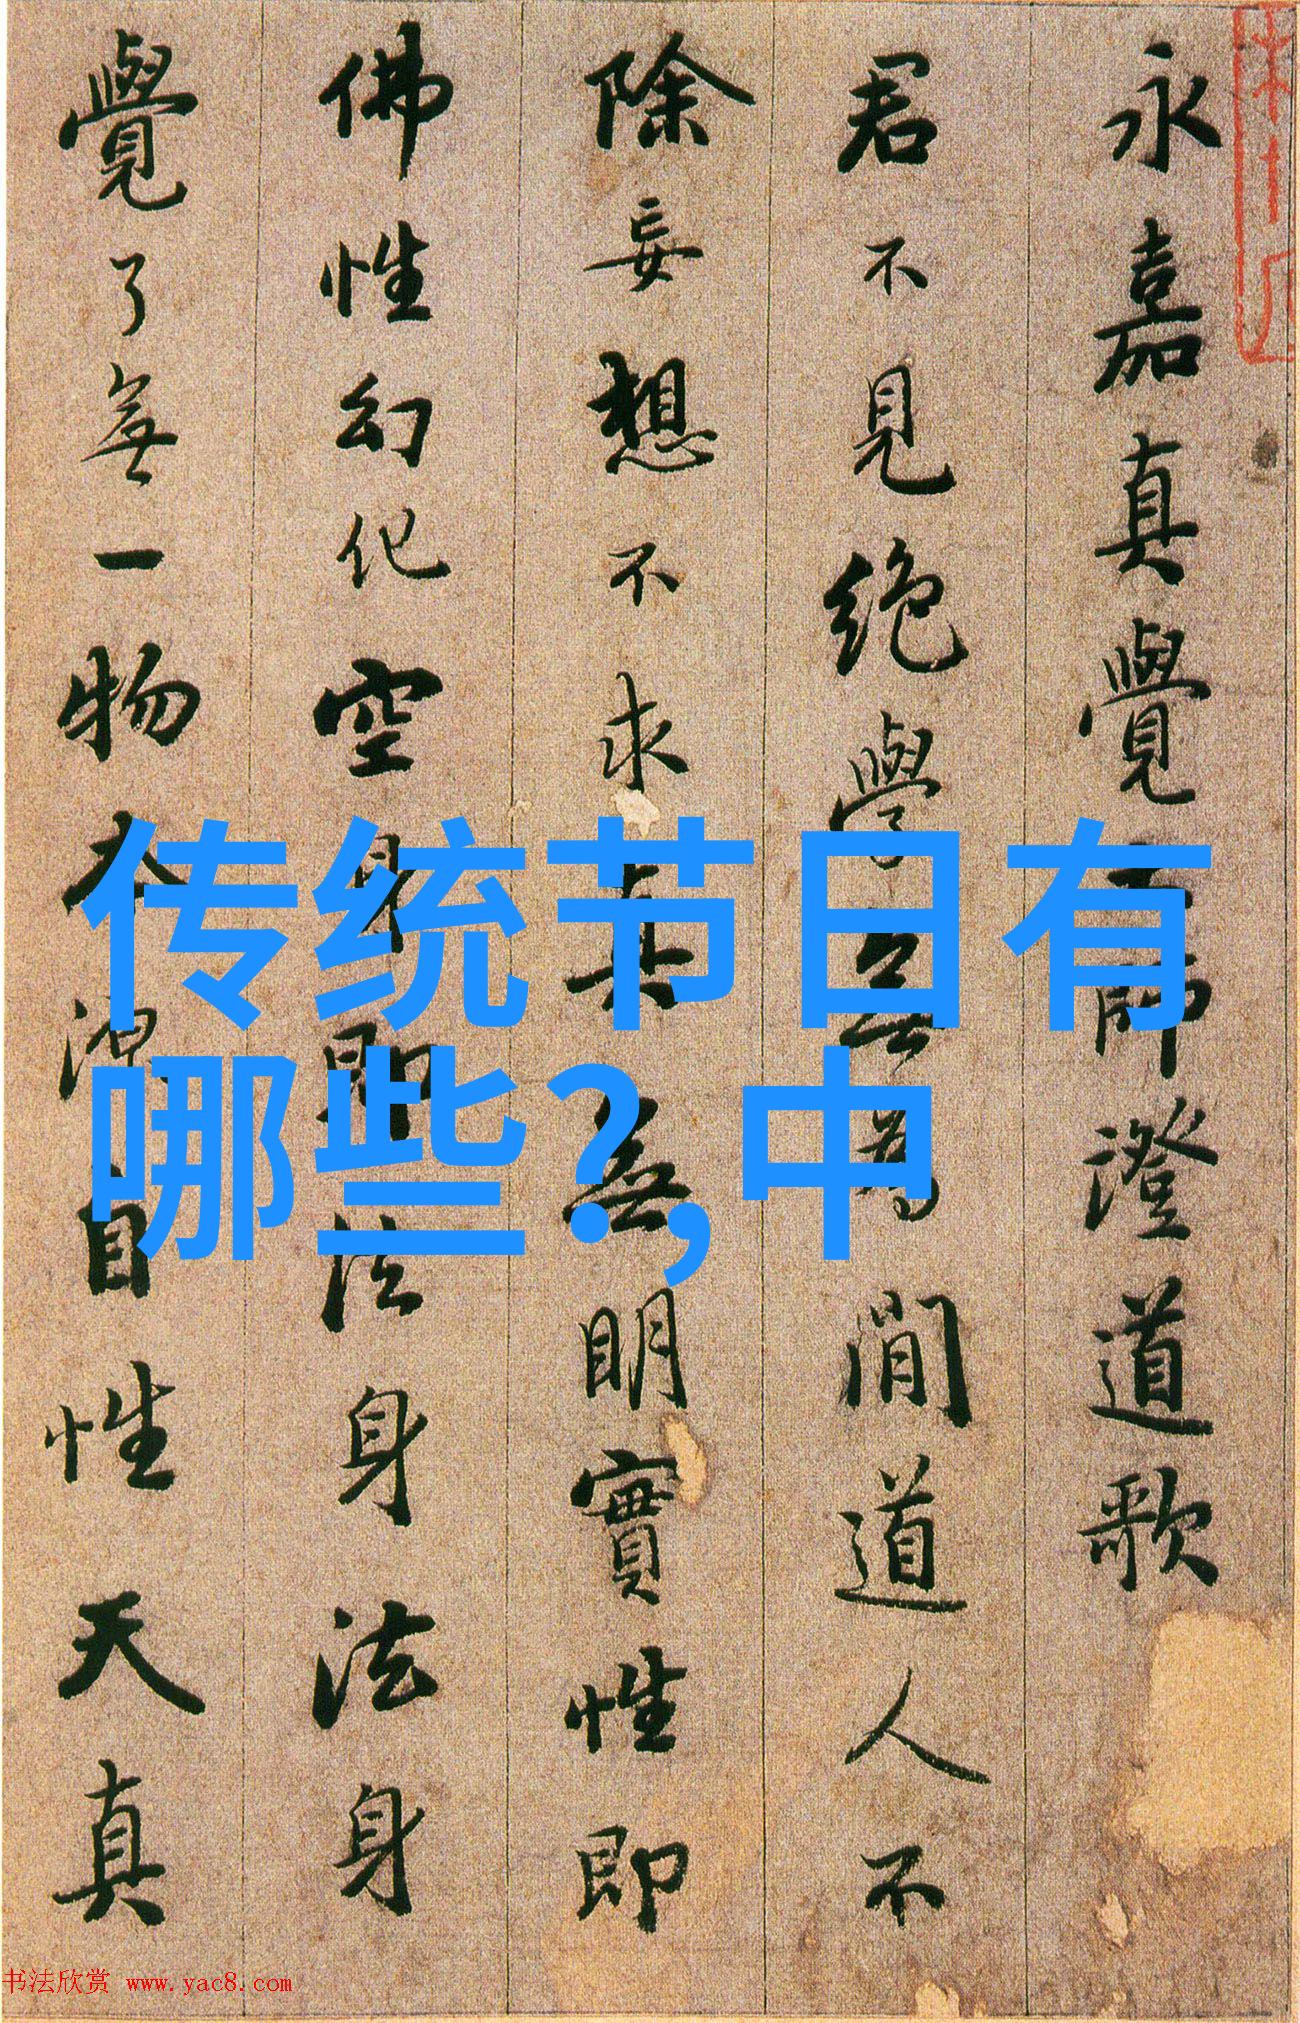 永嘉真覺大師澄道歌
君不見絕學無為閒道人不
除妄想不求真無明實性即
佛性幻化空身即法身法身
覺了無一物本源自性天真
传统节日有
哪些?,中
书法欣赏 www.yac8.com